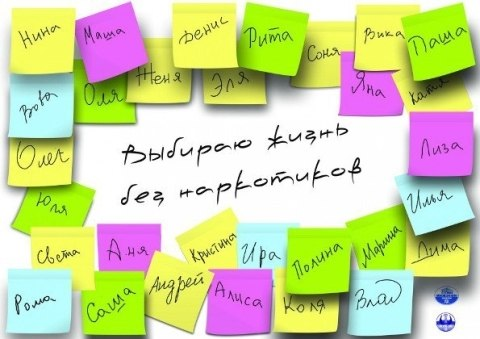 Нина
Маша
Денис
Рита
Соня
Вика
Паша
Вова
Оля
Женя
Эля
Яна
Катя
Выбираю жизнь
без наркотиков
Олег
Лиза
Юля
Илья
Света
Аня
Кристина
Ира
Полина
Марина
Дима
Рома
Саша
Андрей
Алиса
Коля
Влад